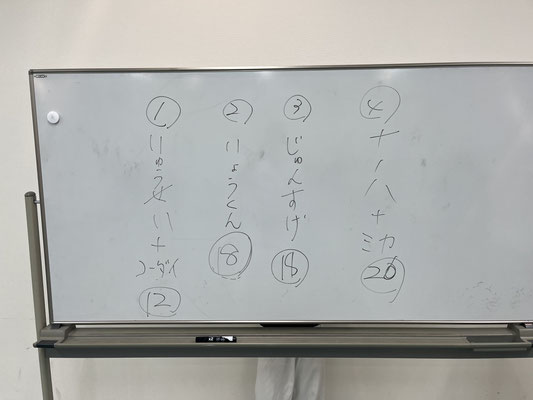 ①
りゅうせい+コーダイ
⑫
②
りょうくん
⑱
③
じゅんすけ
⑱
④
ナノハ+ミカ
⑳